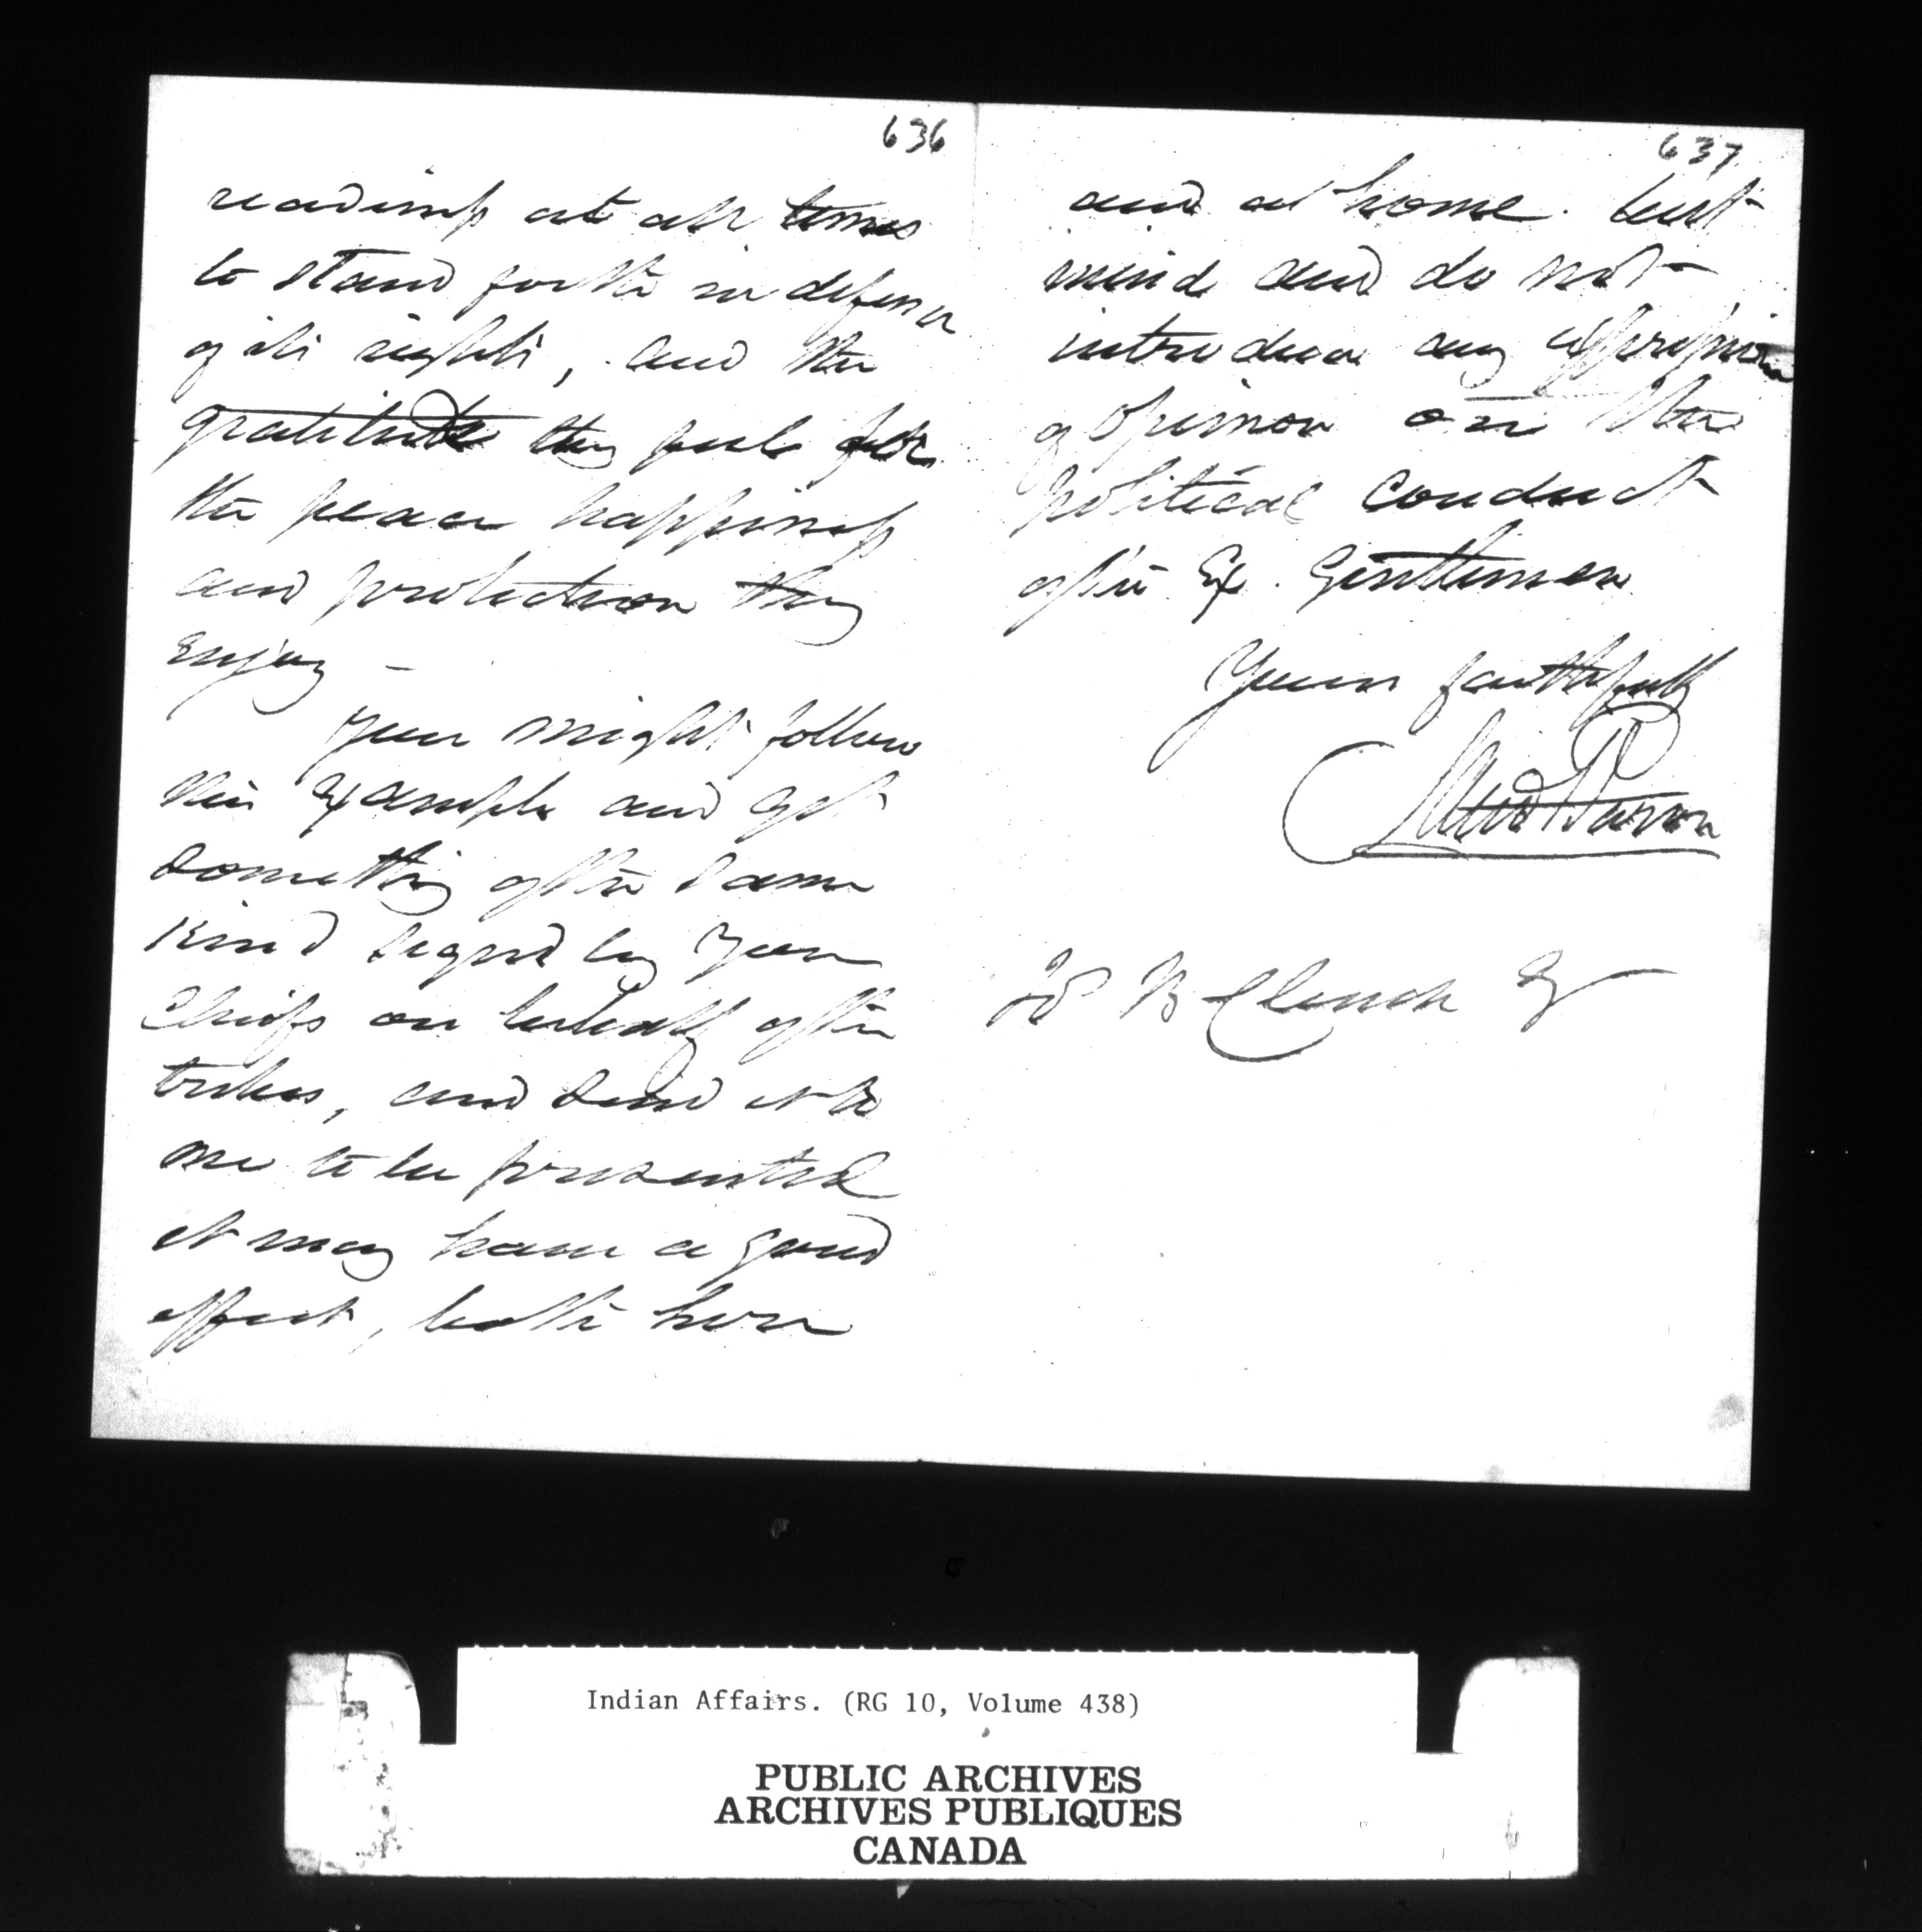 636
readiness at all times
to stand forth in defence
of its rights, and the
gratitude they feel for
the peace happiness
and protection they
enjoy –
You might follow
this Example and get
something of the same
kind signed by your
Chiefs on behalf of the
tribes, and send it to
me to be presented
it may have a good
effect, both here
637
and at home. but
mind and do not
introduce any expression
of opinion on the
political conduct
of the Ex. Gentlemen
Yours faithfully
J B Clench Esq
Indian Affairs. (RG 10, Volume 438)
PUBLIC ARCHIVES
ARCHIVES PUBLIQUES
CANADA